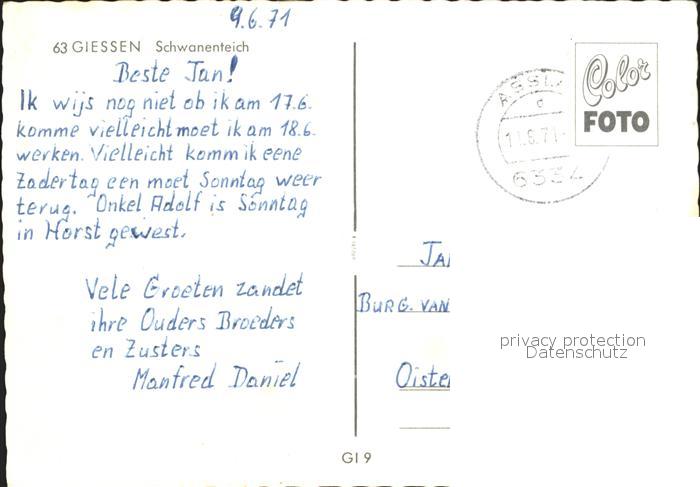 9.6.71
63 GIESSEN Schwanenteich
Beste Jan!
Ik wijs nog niet ob ik am 17.6.
komme vielleicht moet ik am 18.6.
werken. Vielleicht komm ik eene
Zadertag een moet Sonntag weer
terug. Onkel Adolf is Sonntag
in Horst gewest.
Vele Groeten zandet
ihre Ouders Broeders
en Zusters
Manfred Daniel
GI 9
Color
FOTO
ASSL
d
11.6.71
6334
JA
BURG. VAN
Oiste
privacy protection
Datenschutz